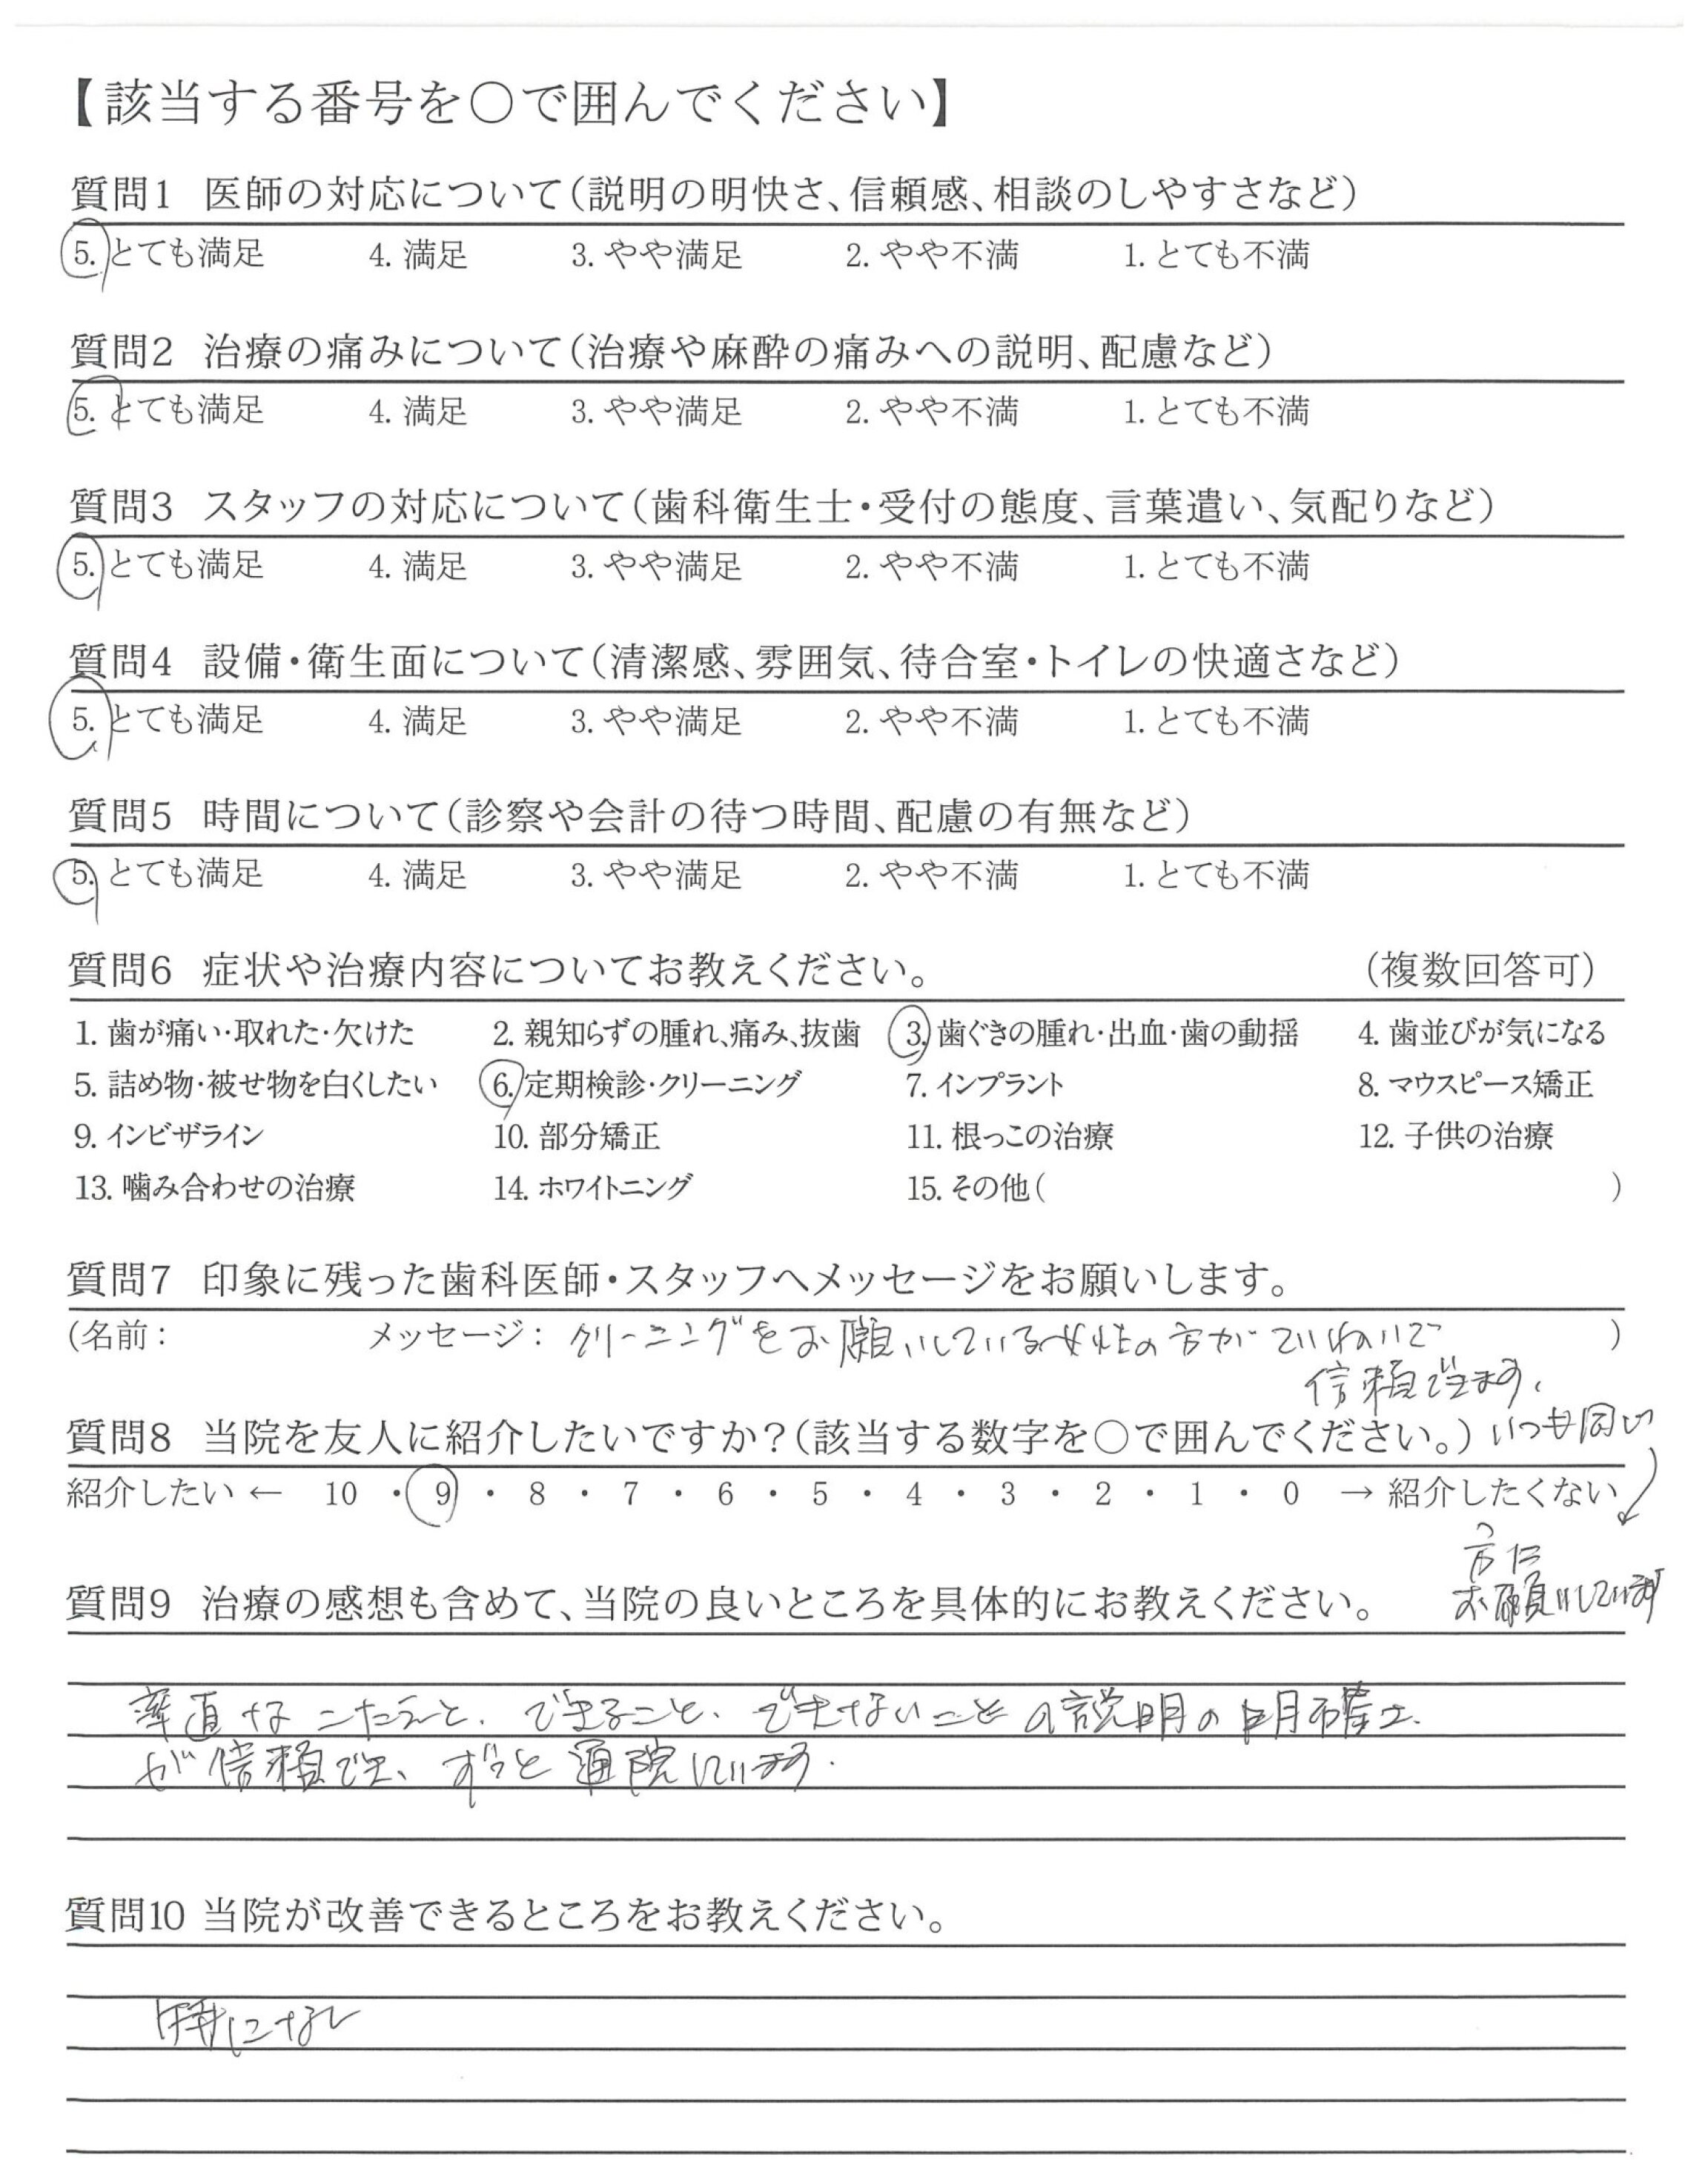 【該当する番号を〇で囲んでください】
質問1 医師の対応について(説明の明快さ、信頼感、相談のしやすさなど)
5. とても満足 4. 満足 3. やや満足 2. やや不満 1. とても不満
質問2 治療の痛みについて(治療や麻酔の痛みへの説明、配慮など)
5. とても満足 4. 満足 3. やや満足 2. やや不満 1. とても不満
質問3 スタッフの対応について(歯科衛生士・受付の態度、言葉遣い、気配りなど)
5. とても満足 4. 満足 3. やや満足 2. やや不満 1. とても不満
質問4 設備・衛生面について(清潔感、雰囲気、待合室・トイレの快適さなど)
5. とても満足 4. 満足 3. やや満足 2. やや不満 1. とても不満
質問5 時間について(診察や会計の待つ時間、配慮の有無など)
5. とても満足 4. 満足 3. やや満足 2. やや不満 1. とても不満
質問6 症状や治療内容についてお教えください。 (複数回答可)
1. 歯が痛い・取れた・欠けた 2. 親知らずの腫れ、痛み、抜歯 3. 歯ぐきの腫れ・出血・歯の動揺 4. 歯並びが気になる
5. 詰め物・被せ物を白くしたい 6. 定期検診・クリーニング 7. インプラント 8. マウスピース矯正
9. インビザライン 10. 部分矯正 11. 根っこの治療 12. 子供の治療
13. 噛み合わせの治療 14. ホワイトニング 15. その他( )
質問7 印象に残った歯科医師・スタッフへメッセージをお願いします。
(名前: メッセージ: クリーニングをお願いしている女性の方がていねいで )
信頼できます。
質問8 当院を友人に紹介したいですか?(該当する数字を〇で囲んでください。) いつも同じ
紹介したい ← 10 ・ 9 ・ 8 ・ 7 ・ 6 ・ 5 ・ 4 ・ 3 ・ 2 ・ 1 ・ 0 → 紹介したくない
方に
質問9 治療の感想も含めて、当院の良いところを具体的にお教えください。 お願いしています
率直なこたえと、できること、できないことの説明の明確さ
が信頼でき、ずっと通院しています.
質問10 当院が改善できるところをお教えください。
特になし